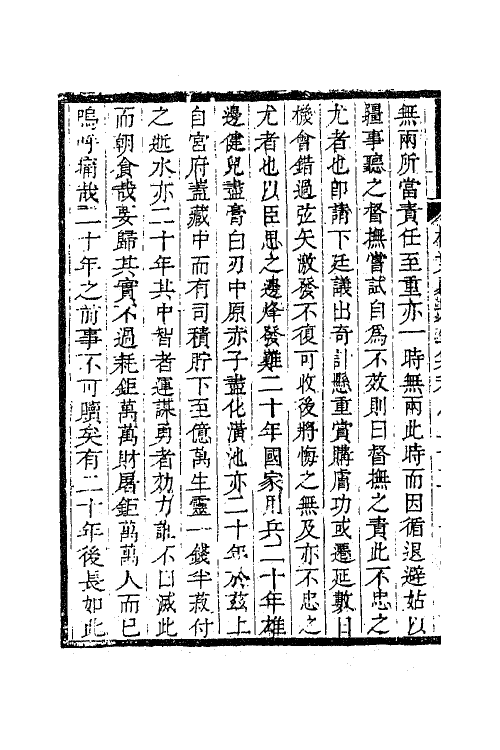 無兩所當責任至重亦一時無兩此時而因循退避姑以
疆事聽之督撫嘗試自爲不效則曰督撫之責此不忠之
尤者也卽請下廷議出奇計懸重賞購膚功或遷延數日
機會錯過弦矢激發不復可收後將悔之無及亦不忠之
尤者也以臣思之邊烽發難二十年國家用兵二十年雄
邊健兒盡膏白刃中原亦子盡化潢池亦二十年於茲上
自宮府蓋藏中而有司積貯下至億萬生靈一錢半菽付
之逝水亦二十年其中智者運謀勇者効力誰不曰滅此
而朝食哉要歸其實不過耗鉅萬萬財屠鉅萬萬人而已
嗚呼痛哉二十年之前事不可贖矣有二十年後長如此